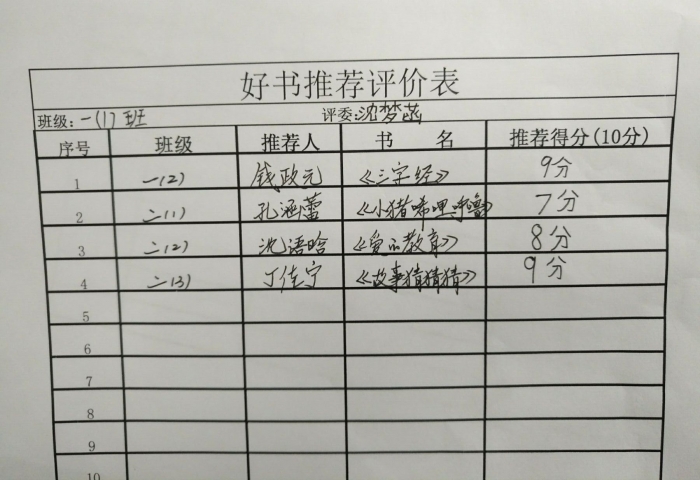 好书推荐评价表
班级：一（1）班 评委：沈梦菡
序号 班级 推荐人 书 名 推荐得分(10分)
1 一（2） 钱政元 《三字经》 9分
2 二（1） 孔涵蕾 《小猪唏哩呼噜》 7分
3 二（2） 沈语晗 《爱的教育》 8分
4 二（3） 丁佳宁 《故事猜猜猜》 9分
5
6
7
8
9
10